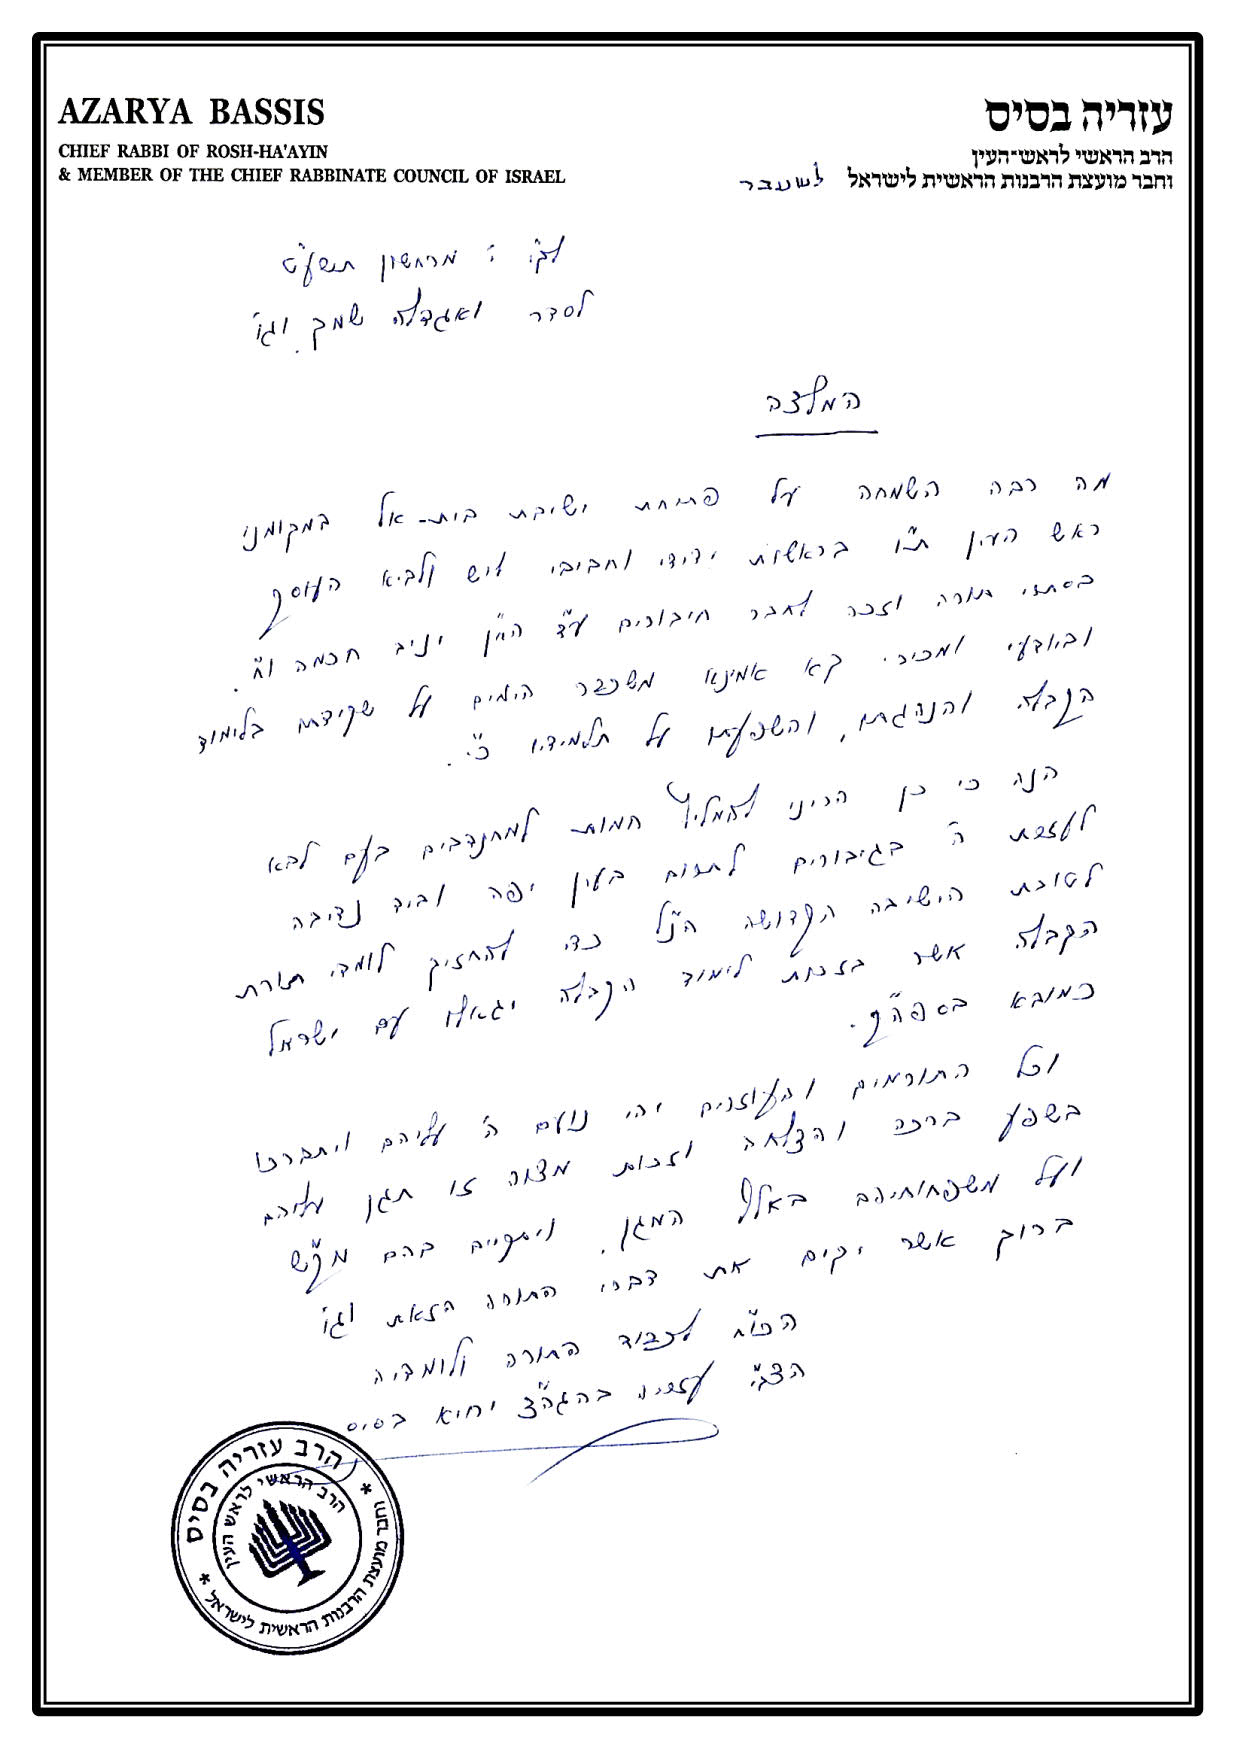 AZARYA BASSIS
CHIEF RABBI OF ROSH-HA'AYIN
& MEMBER OF THE CHIEF RABBINATE COUNCIL OF ISRAEL
עזריה בסיס
הרב הראשי לראש־העין
וחבר מועצת הרבנות הראשית לישראל לשעבר
י' מרחשון תשע"ט
לסדר ואגדלה שמך וגו'
המלצה
מה רבה השמחה על פתיחת ישיבת בית-אל במקומנו
ראש העין ת"ו בראשות ידידי וחביבי איש ולביא העוסק
בסתרי תורה וזכה לחבר חיבורים ה"ן יניב חכמה
וביודעי ומכירי קא אמינא משכבר הימים על שקידתו בלימוד
הקבלה והנהגתו, והשפעתו על תלמידיו כ"י.
הנה כי כן הריני להמליץ חמות למתנדבים בעם לבא
לעזרת ה' בגיבורים לתרום בעין יפה וביד נדיבה
לטובת הישיבה הקדושה הנ"ל כדי להחזיק לומדי תורת
הקבלה אשר בזכות לימוד הקבלה יגאלו עם ישראל
כמובא בספה"ק.
וכל התורמים והעוזרים יהי נועם ה' עליהם ויתברכו
בשפע ברכה והצלחה וזכות מצוה זו תגן עליהם
ועל משפחותיהם באלף המגן. ויתקיים בהם מק"ש
ברוך אשר יקים את דברי התורה הזאת וגו'
הכו"ח לכבוד התורה ולומדיה
הצב"י עזריה בהגה"צ יחיא בסיס
הרב עזריה בסיס
הרב הראשי לראש העין
* וחבר מועצת הרבנות הראשית לישראל *